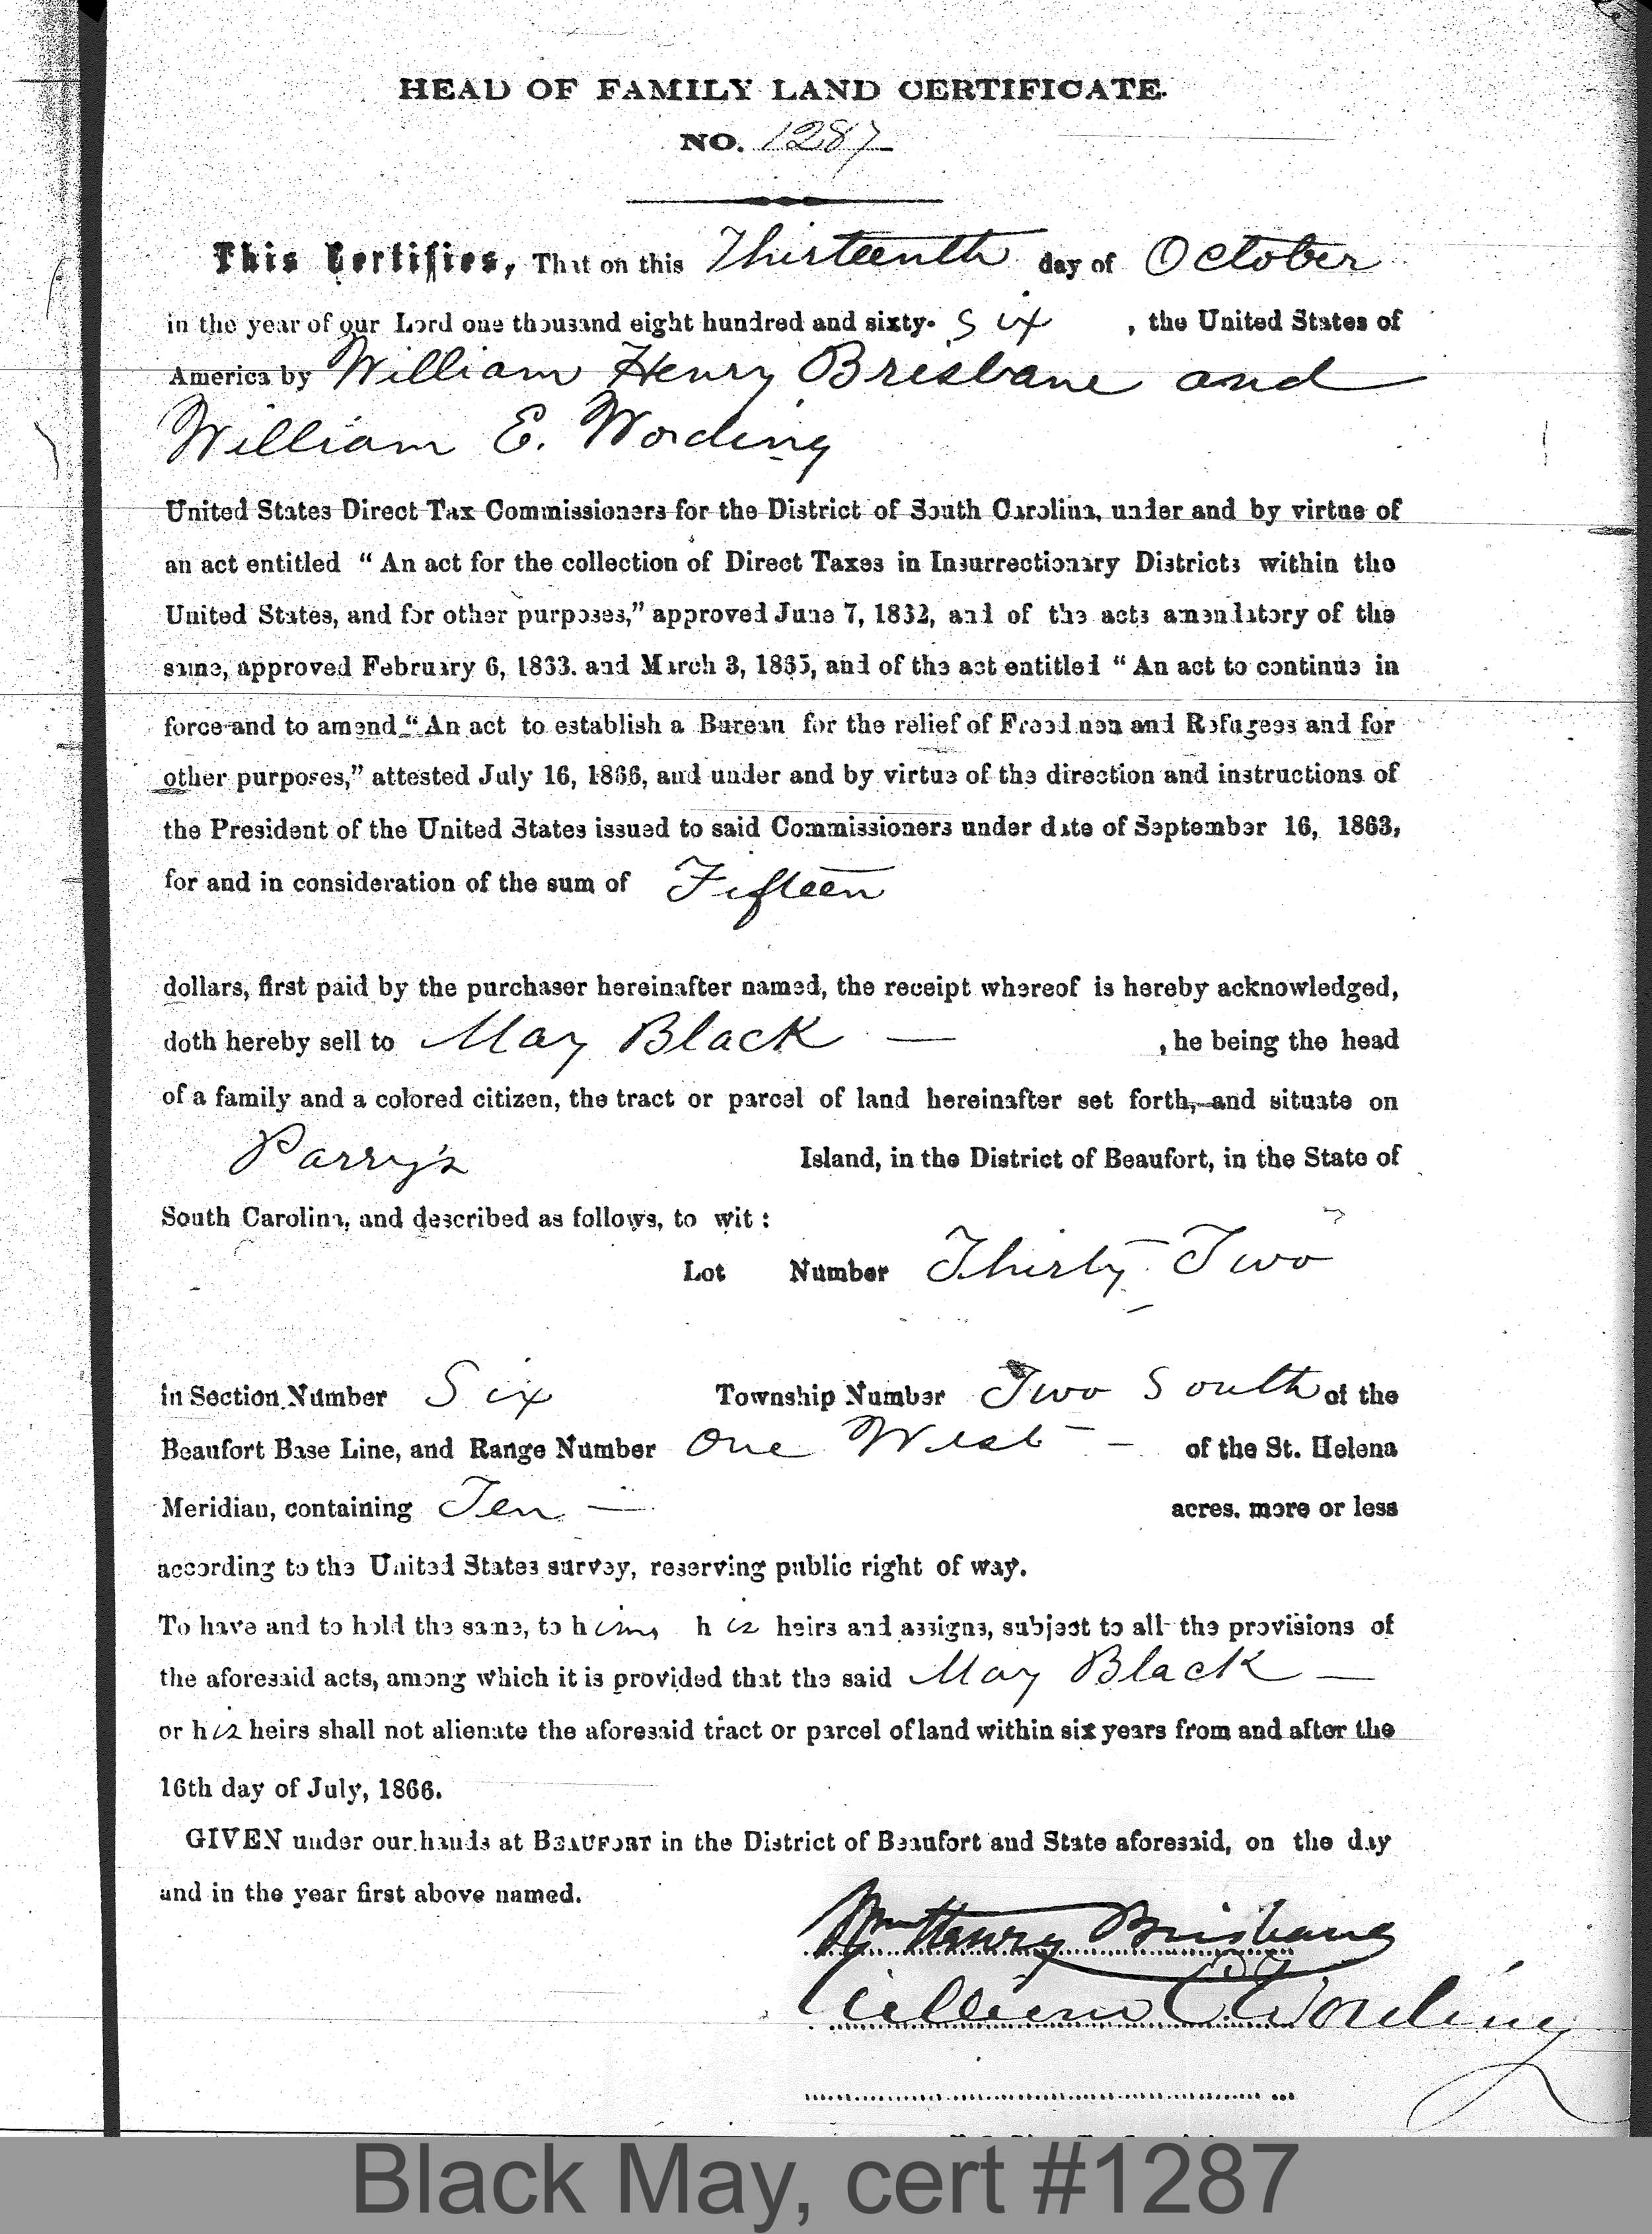 HEAD OF FAMILY LAND CERTIFICATE.
NO. 1287
This Certifies, That on this Thirteenth day of October
in the year of our Lord one thousand eight hundred and sixty- six , the United States of
America by William Henry Brisbane and
William E. Wording
United States Direct Tax Commissioners for the District of South Carolina, under and by virtue of
an act entitled " An act for the collection of Direct Taxes in Insurrectionary Districts within the
United States, and for other purposes," approved June 7, 1862, and of the acts amendatory of the
same, approved February 6, 1863. and March 3, 1865, and of the act entitled " An act to continue in
force and to amend "An act to establish a Bureau for the relief of Freedmen and Refugees and for
other purposes," attested July 16, 1866, and under and by virtue of the direction and instructions of
the President of the United States issued to said Commissioners under date of September 16, 1863,
for and in consideration of the sum of Fifteen
dollars, first paid by the purchaser hereinafter named, the receipt whereof is hereby acknowledged,
doth hereby sell to May Black — , he being the head
of a family and a colored citizen, the tract or parcel of land hereinafter set forth, and situate on
Parry's Island, in the District of Beaufort, in the State of
South Carolina, and described as follows, to wit :
Lot Number Thirty Two
in Section Number Six Township Number Two South of the
Beaufort Base Line, and Range Number One West — of the St. Helena
Meridian, containing Ten — acres. more or less
according to the United States survey, reserving public right of way.
To have and to hold the same, to him, his heirs and assigns, subject to all the provisions of
the aforesaid acts, among which it is provided that the said May Black —
or his heirs shall not alienate the aforesaid tract or parcel of land within six years from and after the
16th day of July, 1866.
GIVEN under our hands at BEAUFORT in the District of Beaufort and State aforesaid, on the day
and in the year first above named.
Wm Henry Brisbane
William E. Wording
Black May, cert #1287